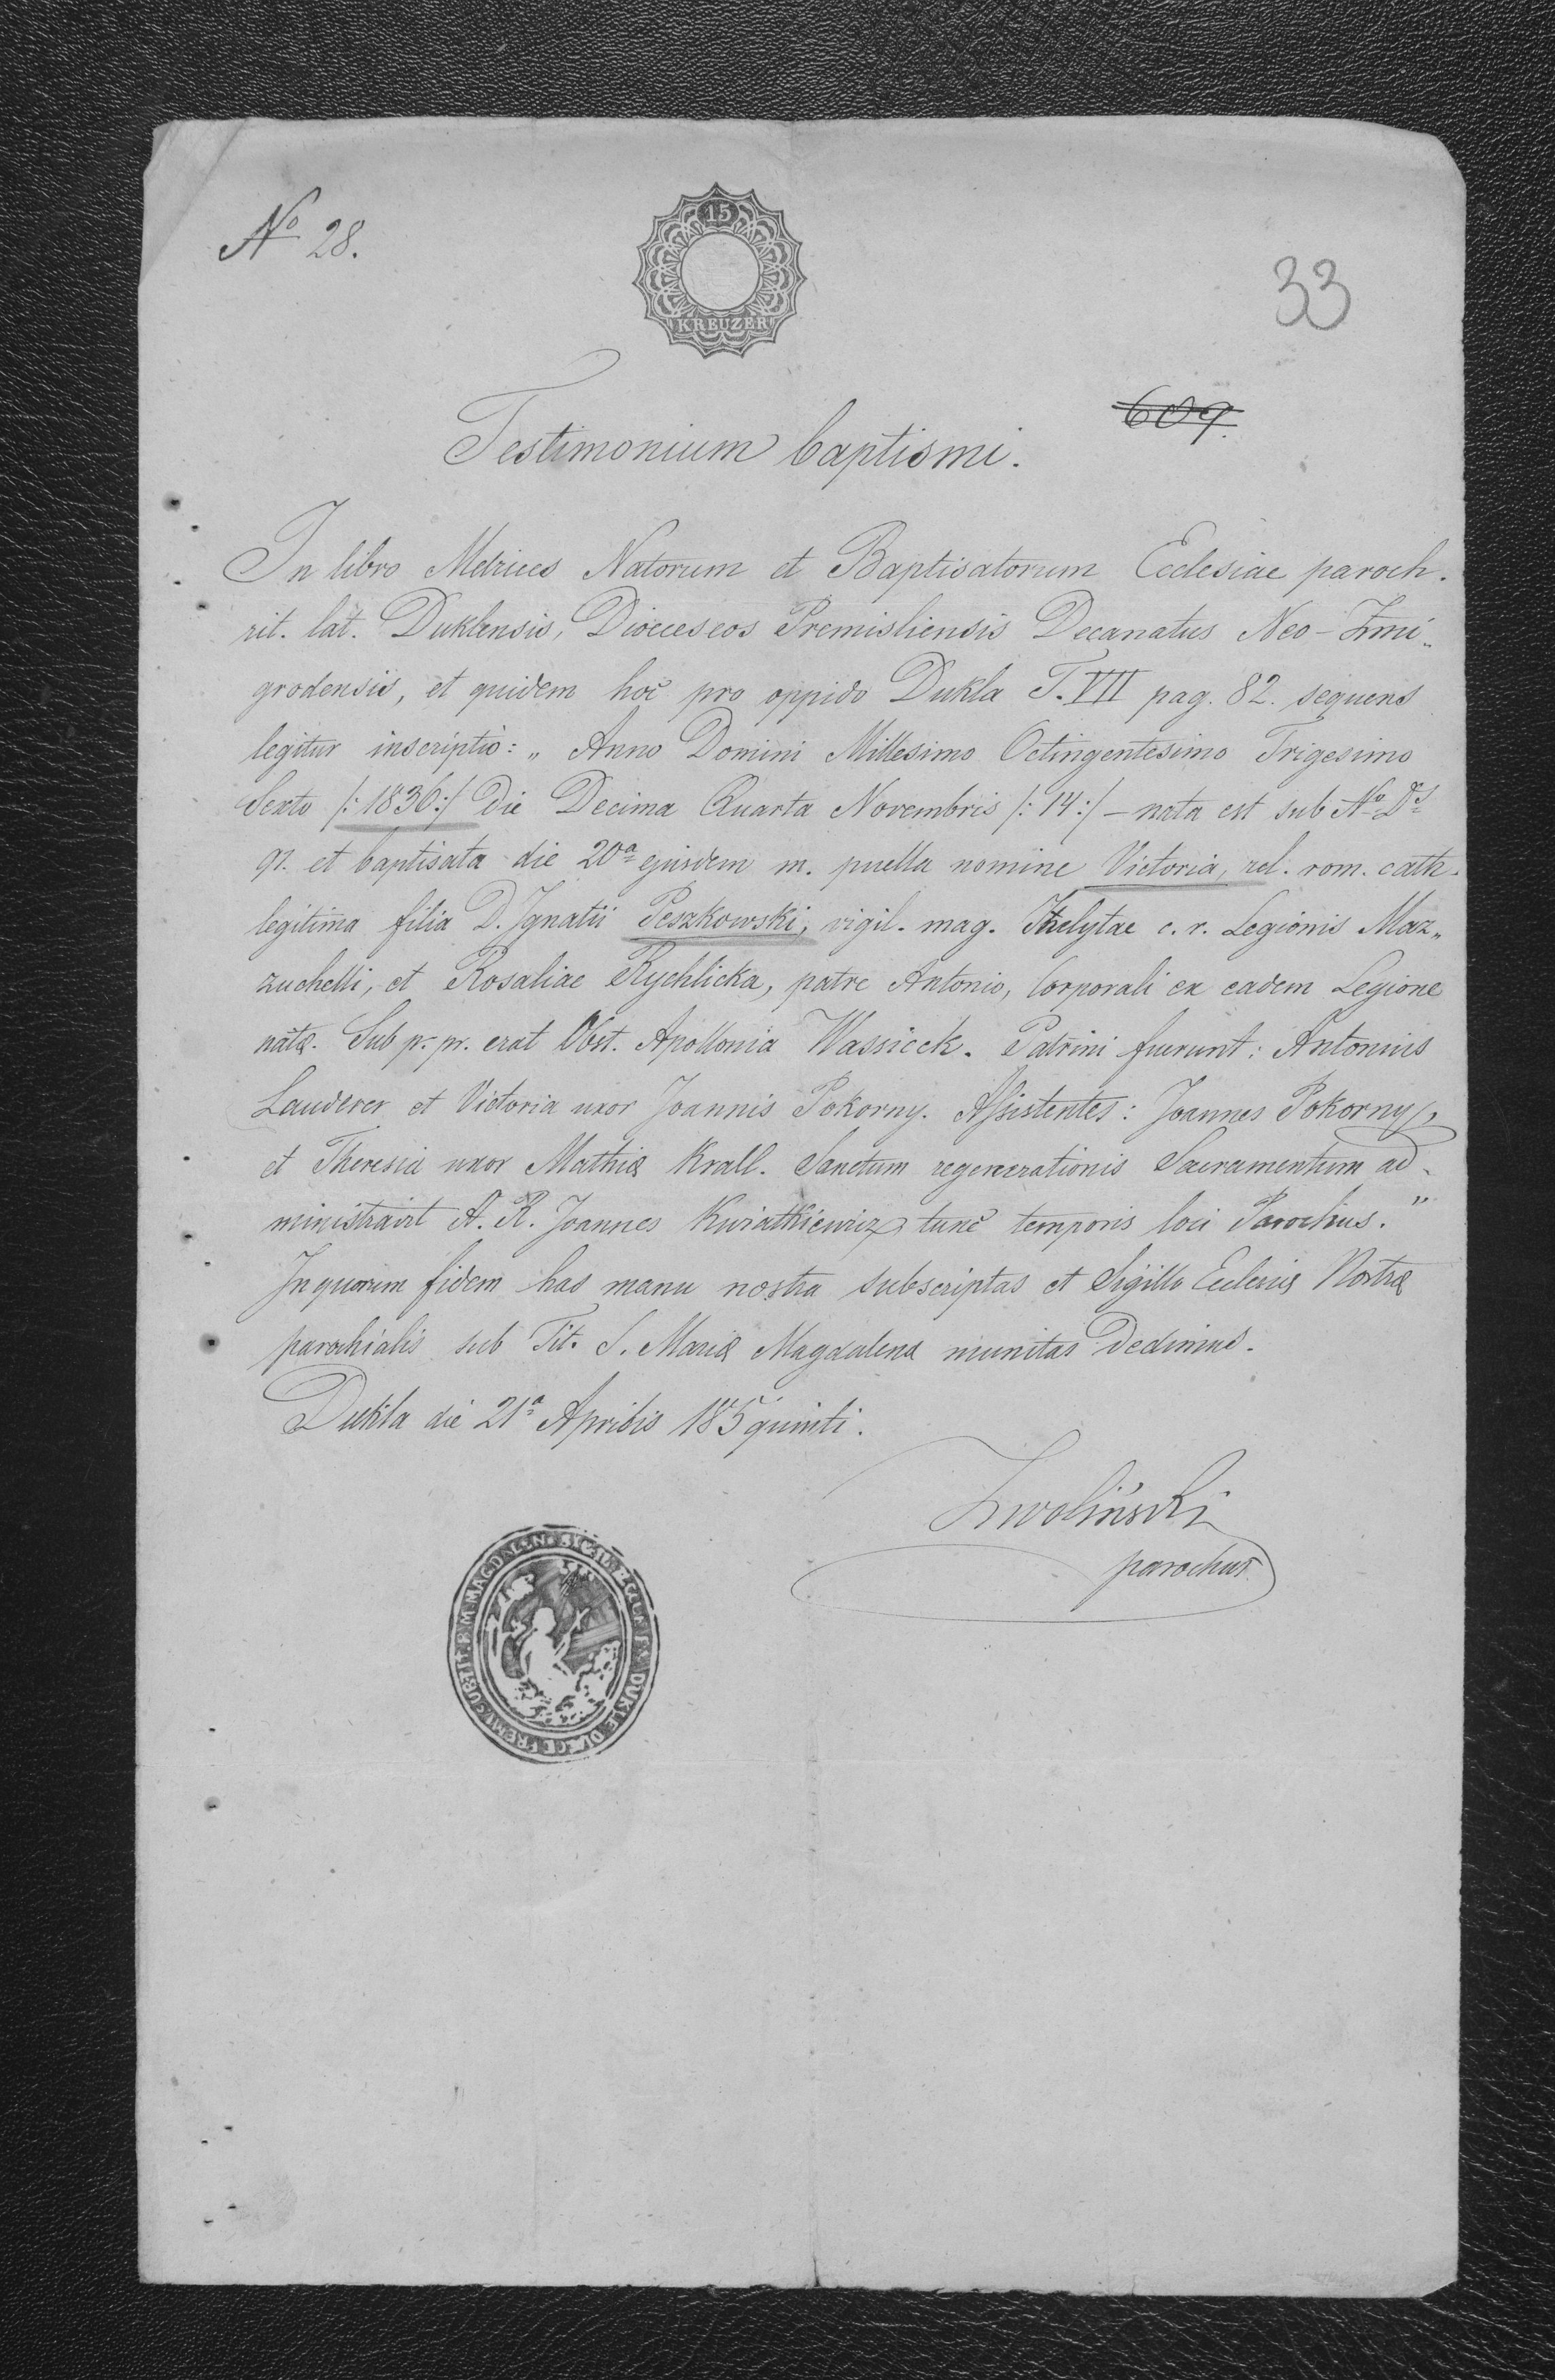 Nº 28.
15
KREUZER
33
609.
Testimonium baptismi.
In libro Metrices Natorum et Baptisatorum Ecclesiae paroch.
rit. lat. Duklensis, Dioeceseos Premisliensis Decanatus Neo-Zmi„
grodensis, et quidem hoc pro oppido Dukla T. VII pag. 82. sequens
legitur inscriptio: „ Anno Domini Millesimo Octingentesimo Trigesimo
Sexto /: 1836 :/ Die Decima Quarta Novembris /: 14 :/ – nata est sub Nº
91. et baptisata die 20ª ejusdem m. puella nomine Victoria, rel. rom. cath.
legitima filia D. Ignatii Peszkowski, vigil. mag. c. r. Legionis Maz„
zuchelli, et Rosaliae Rychlicka, patre Antonio, Corporali ex eadem Legione
natæ. Sub p. pr. erat Obst. Apollonia Wassicek. Patrini fuerunt: Antonius
Lauderer et Victoria uxor Joannis Pokorny. Assistentes: Joannes Pokorny,
et Theresia uxor Mathiæ Krall. Sanctum regenerationis Sacramentum ad„
ministravit A. R. Joannes Kwiatkiewicz tunc temporis loci Parochus."
In quorum fidem has manu nostra subscriptas et Sigillo Eclesiæ Nostræ
parochialis sub Tit. S. Mariæ Magdalenæ munitas Dedimus.
Dukla die 21ª Aprilis 185quinti.
Zwoliński
parochus